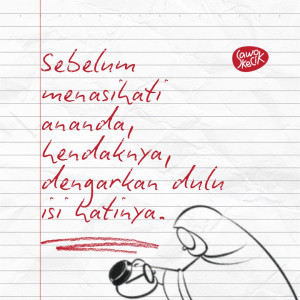 Sebelum
menasihati
ananda,
hendaknya,
dengarkan dulu
isi hatinya.